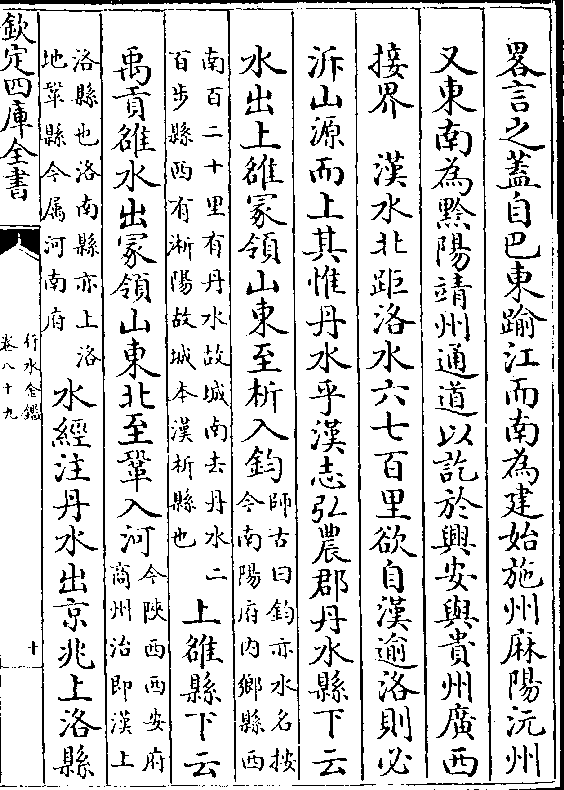 畧言之蓋自巴東踰江而南為建始施州麻陽沅州
又東南為黔陽靖州通道以訖於興安與貴州廣西
接界　漢水北距洛水六七百里欲自漢逾洛則必
泝山源而上其惟丹水乎漢志弘農郡丹水縣下云
水出上雒冢領山東至析入鈞
師古曰鈞亦水名按
今南陽府内鄉縣西
南百二十里有丹水故城南去丹水二
百步縣西有淅陽故城本漢析縣也
上雒縣下云
禹貢雒水出冢領山東北至鞏入河
今陜西西安府
商州治即漢上
洛縣也洛南縣亦上洛
地鞏縣今属河南府
水經注丹水出京兆上洛縣
欽定四庫全書
行水金鑑
卷八十九
十